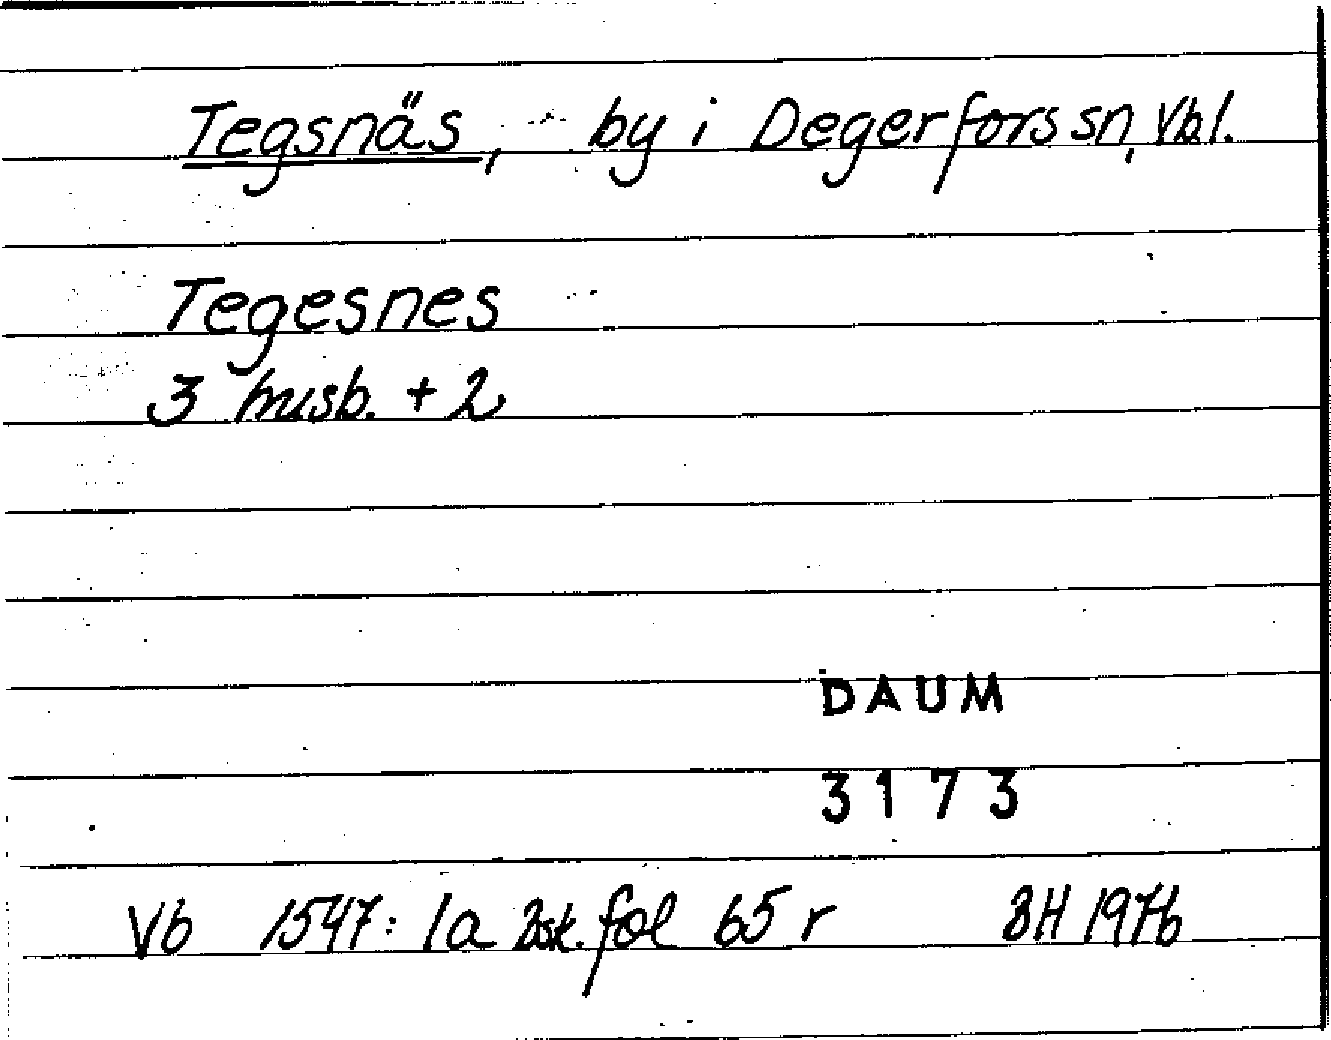 Tegsnäs, by i Degerfors sn, Vbl.
Tegesnes
3 husb. + 2
DAUM
3173
Vb 1547: 1a Bsk. fol 65 r BH 1976